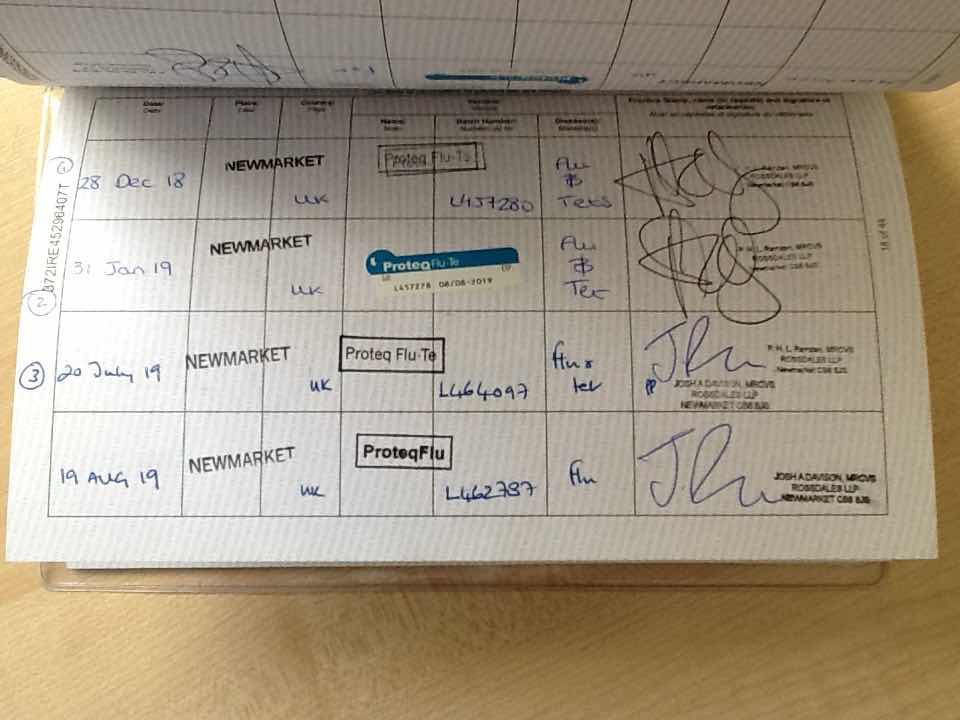 Date/
Place/
Country/
Vaccine/
Name/
Batch Number/
Disease(s)/
372IRE45296407T
18 of 44
1
28 Dec 18
NEWMARKET
UK
Proteq Flu-Te
L457280
Flu
&
Tets
MRCVS
ROSSDALES LLP
Newmarket CB8 8JS
2
31 Jan 19
NEWMARKET
UK
ProteqFlu-Te
L457278 08/08-2019
Flu
&
Tet
P. H. L. Ramzan, MRCVS
ROSSDALES LLP
Newmarket CB8 8JS
3
20 July 19
NEWMARKET
UK
Proteq Flu-Te
L464097
flu x
tet
P. H. L. Ramzan, MRCVS
ROSSDALES LLP
Newmarket CB8 8JS
PP
JOSH A DAVISON, MRCVS
ROSSDALES LLP
NEWMARKET CB8 8JS
19 AUG 19
NEWMARKET
UK
ProteqFlu
L462787
flu
JOSH A DAVISON, MRCVS
ROSSDALES LLP
NEWMARKET CB8 8JS